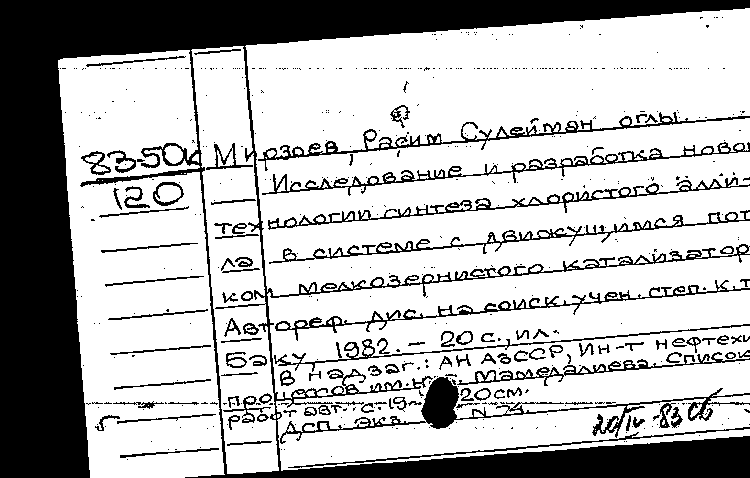 83-50к Мирзоев, Расим Сулейман оглы.
120 Исследование и разработка ново
технологии синтеза хлористого алли-
ла в системе с движущимся пот
ком мелкозернистого катализатор
Автореф. дис. на соиск. учен. степ. к.т
Баку, 1982. – 20 с., ил.
В надзаг.: АН АзССР, Ин-т нефтехи
процессов им. Мамедалиева. Список
работ авт.: с. 19- 20 см.
ДСП. Экз. N 74.
20/IV-83